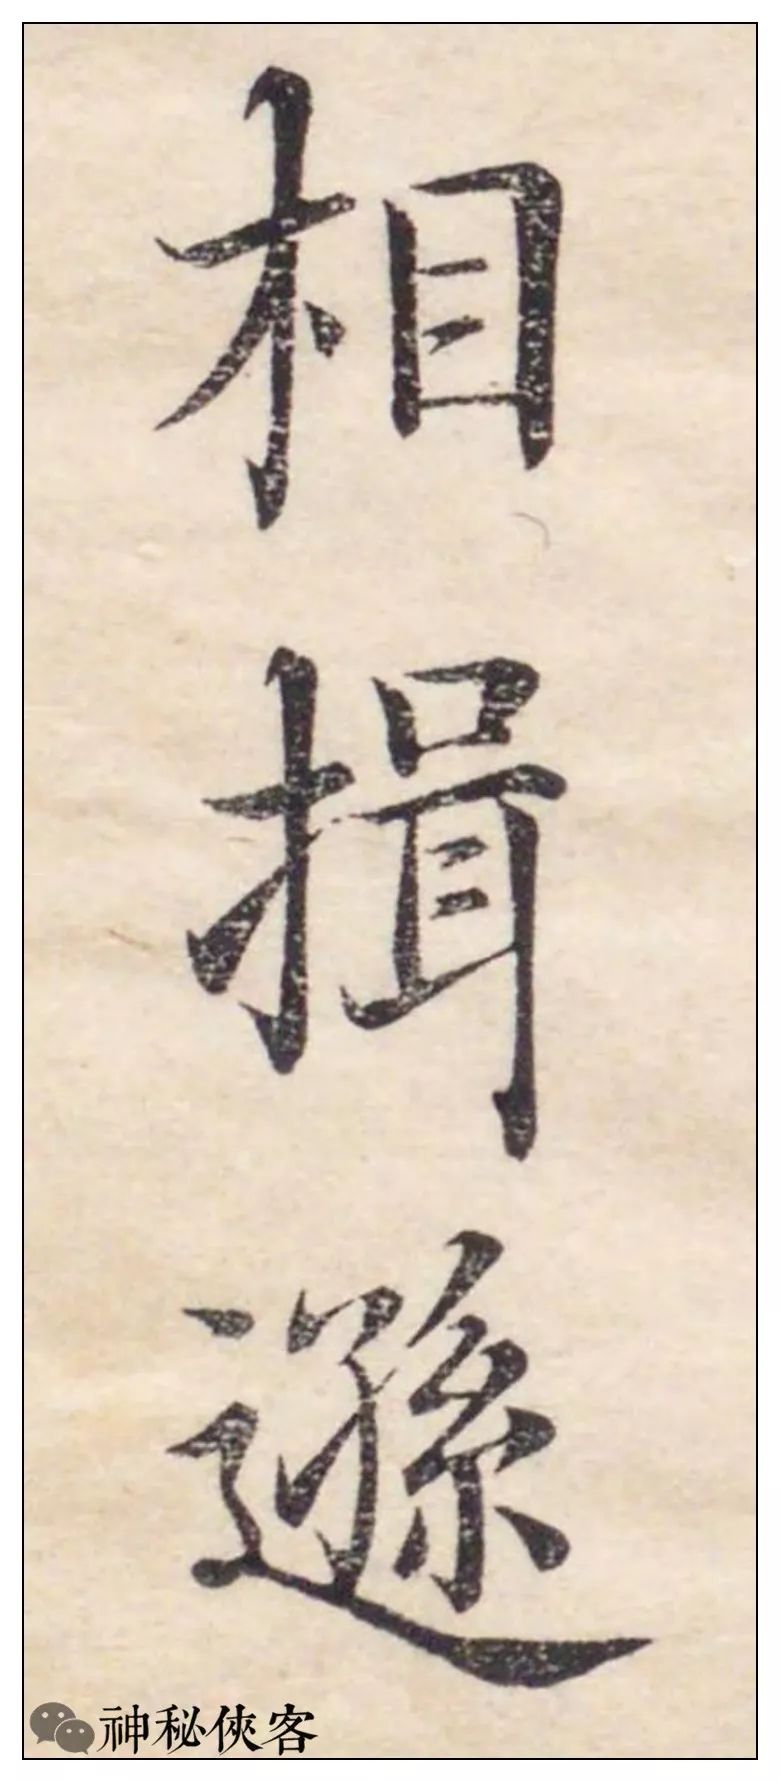 相揖遜
神秘俠客